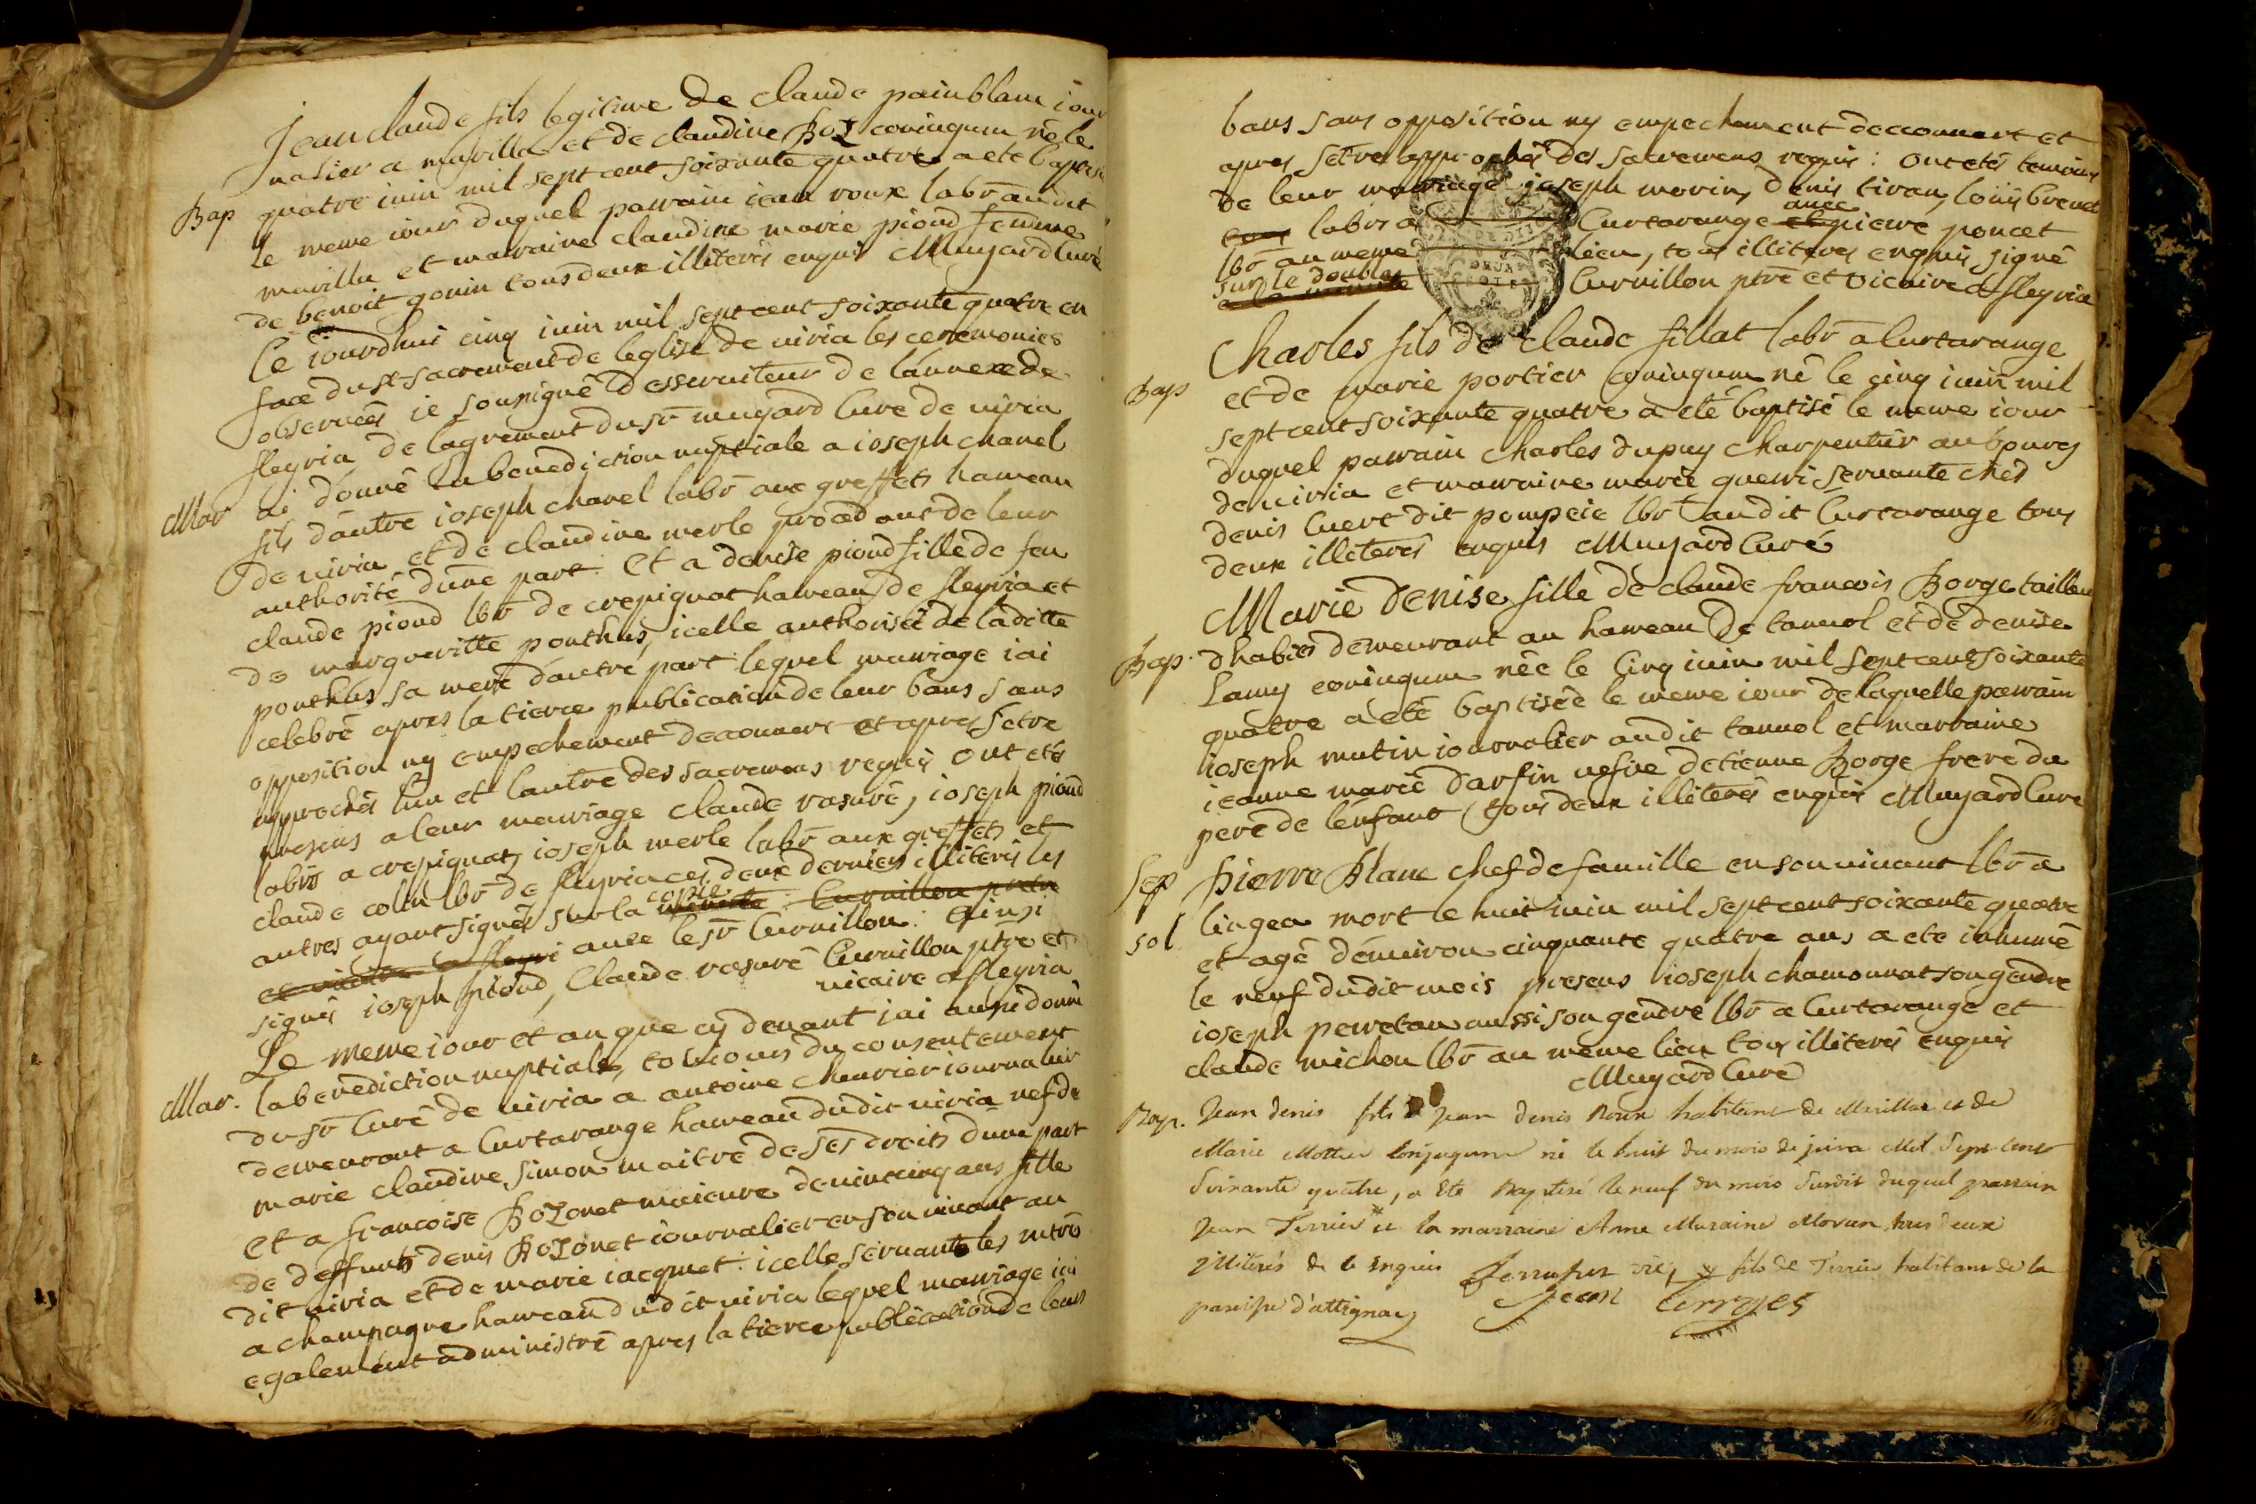 Jean claude fils legitime de claude painblanc iour
nalier a marilla et de claudine Boz coniugum né le
Bap quatre iuin mil sept cent soixante quatre a ete baptisé
le meme iour duquel parrain iean roux labr̄ audit
marilla et marraine claudine marie pioud femme
de benoit gonin tous deux illiterés enquis Muyard Curé
Ce iourdhui cinq iuin mil sept cent soixante quatre en
face du st sacrement de leglise de viria les ceremonies
observeés ie sousigné desserviteur de lannexe de
fleyria de lagrement du sr̄ muyard Curé de viria
Mar ai donné la benediction nuptiale a ioseph chanel
fils d'autre ioseph chanel labr̄ aux greffets hameau
de viria et de claudine merle procedant de leur
authorité dune part. et a denise pioud fille de feu
claude pioud lbr̄ de crepignat hameau de fleyria et
de margueritte ponthus, icelle authorisée de laditte
ponthus sa mere dautre part. lequel mariage iai
celebré apres la tierce publication de leur bans sans
opposition ny empechement decouvert et apres setre
approchés lun et lautre des sacremens requis ont etés
presens a leur mariage claude rasuré, ioseph pioud
labrs a crepignat, ioseph merle labr̄ aux greffets et
claude colin lbr̄ de fleyria ces deux derniers illiterés les
autres ayant signés sur la minute copie Curvillon ptre
et vicaire a fleyri avec le sr̄ Curvillon. Ainsi
signés ioseph pioud, Claude rasuré Curvillon ptre et
vicaire a fleyria
Le meme iour et an que cy devant iai aussi donné
Mar. la benediction nuptiale, toujours du consentement
du sr̄ Curé de viria a antoine Chevrier iournalier
demeurant a Curtarange hameau dudit viria vef de
marie claudine simon maitre de ses droits dune part
et a francoise Bozonet maieure de vint cinq ans fille
de deffunts denis Bozonet iournalier en son vivant au
dit viria et de marie iacquet. icelle servante les mtres
a champagne hameau dudit viria lequel mariage iai
egalement administré apres la tierce publication de leurs
bans sans opposition ny empechement decouvert et
apres setre approchés des sacremens requis. Ont etés temoins
de leur mariage ioseph morin, denis tiran, loüis brevet
tous labrs a Curtarange et avec pierre poncet
lbr̄ au meme lieu, tous illiteres enquis, signé
sur le double Curvillon ptre et vicaire a fleyria
Charles fils de claude fillat labr̄ a Curtarange
Bap et de marie portier coniugum né le cinq iuin mil
sept cent soixante quatre a eté baptisé le meme iour
duquel parrain charles dupuy charpentier au bourg
de viria et marraine marie querri servante chés
denis Cuert dit pompeie lbr̄ audit Curtarange tous
deux illiterés enquis Muyard Curé
Marie Denise fille de claude francois Borge tailleu
Bap. dhabits demeurant au hameau de tannol et de denise
Lamy coniugum née le cinq iuin mil sept cent soixante
quatre a eté baptisée le meme iour de laquelle parrain
ioseph mutin iournalier audit tannol et marraine
ieanne marie darfin vefve detienne Borge frere du
pere de lenfant tous deux illiterés enquis Muyard Curé
Sep pierre Blanc chef de famille en son vivant lbr̄ a
sol lingea mort le huit iuin mil sept cent soixante quatre
et agé denviron cinquante quatre ans a ete inhumé
le neuf dudit mois presens ioseph chamonnat son gendre
ioseph perretan aussi son gendre lbr̄ a Curtarange et
claude michon lbr̄ au meme lieu tous illiterés enquis
Muyard Curé
Bap. Jean denis fils de jean denis Roux habitant de Marillat et de
Marie Mottier Conjugum né le huit du mois de juin Mil Sept Cent
Soixante quatre, a Eté Baptisé le neuf du mois Susdit duquel parrain
Jean Terrier * et la marraine Anne Moran tous deux
illiterés de le Enquis * fils de Terrier habitant de la
paroisse d'attignat Jean